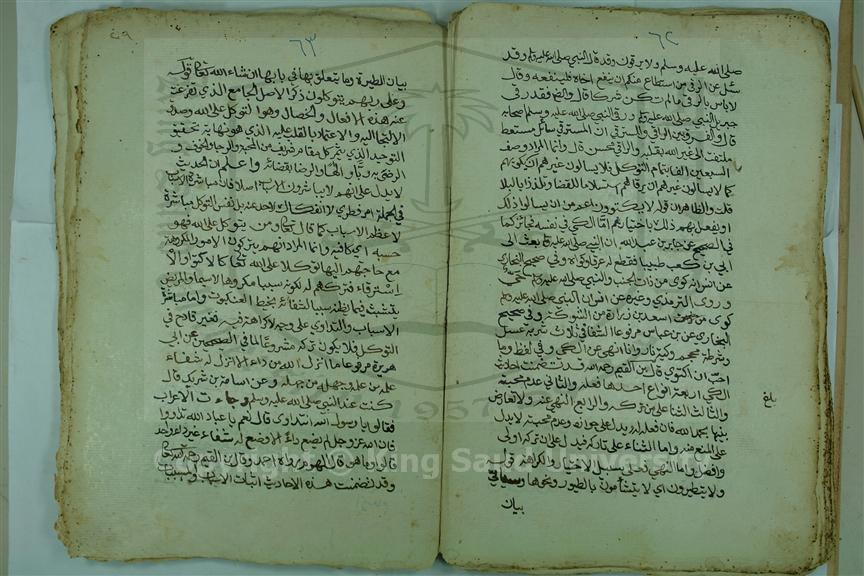 ٦٢
صلى الله عليه وسلم ولا يرقون وقد قال النبي صلى الله عليه وسلم وقد
سئل عن الرقى من استطاع منكم ان ينفع اخاه فلينفعه وقال
لا باس بالرقى ما لم تكن شركا قال وايضا فقد رقى
جبريل النبي صلى الله عليه وسلم ورقى النبي صلى الله عليه وسلم اصحابه
قال والفرق بين الراقي والمسترقي ان المسترقي سائل مستعط
ملتفت الى غير الله بقلبه والراقي محسن قال وانما المراد وصف
السبعين الفا بتمام التوكل فلا يسألون غيرهم ان يرقيهم
كما لا يسألون غيرهم ان يرقاهم استسلاما للقضا وتلذذا بالبلا
قلت والظاهر ان قوله لا يكتوون اعم من ان يسالوا ذلك
او يفعل بهم ذلك باختيارهم اما الكي في نفسه فجائز كما
في الصحيح عن جابر بن عبد الله ان النبي صلى الله عليه وسلم بعث الى
ابي بن كعب طبيبا فقطع له عرقا وكواه وفي صحيح البخاري
عن انس انه كوى من ذات الجنب والنبي صلى الله عليه وسلم حي
وروى الترمذي وغيره عن انس ان النبي صلى الله عليه وسلم
كوى اسعد بن زرارة من الشوكة وفي صحيح
البخاري عن ابن عباس مرفوعا الشفا في ثلاث شربة عسل
وشرطة محجم وكية نار وانا انهى عن الكي وفي لفظ وما
احب ان اكتوي قال ابن القيم رحمه الله قد تضمنت احاديث
الكي اربعة انواع احدها فعله والثاني عدم محبته
والثالث الثنا على من تركه والرابع النهي عنه ولا تعارض
بينها بحمد الله فان فعله له يدل على جوازه وعدم محبته لا يدل
على المنع منه واما الثناء على تاركه فيدل على ان تركه اولى
وافضل واما النهي فعلى سبيل الاختيار والكراهة قوله
ولا يتطيرون اي لا يتشأمون بالطيور ونحوها وسيأتي
بيان
بلغ
٦٣
بيان الطيرة وما يتعلق بها في بابها ان شاء الله تعالى قوله
وعلى ربهم يتوكلون ذكر الاصل الجامع الذي تفرعت
عنه هذه الافعال والخصال وهو التوكل على الله وصدق
الالتجا اليه والاعتماد بالقلب عليه الذي هو نهاية تحقيق
التوحيد الذي يثمر كل مقام شريف من المحبة والرجا والخوف و
الرضى به ربا والها والرضا بقضائه واعلم ان الحديث
لا يدل على انهم لا يباشرون الاسباب اصلا فان مباشرة الاسباب
في الجملة امر فطري لا انفكاك لاحد عنه بل نفس التوكل مباشرة
لاعظم الاسباب كما قال تعالى ومن يتوكل على الله فهو
حسبه اي كافيه وانما المراد انهم يتركون الامور المكروهة
مع حاجتهم اليها توكلا على الله تعالى كالاكتواء والا
سترقاء فتركهم له لكونه سببا مكروها لاسيما والمريض
يتشبث فيما يظنه سببا لشفائه بخيط العنكبوت واما مباشرة
الاسباب والتداوي على وجه لا كراهة فيه فغير قادح في
التوكل فلا يكون تركه مشروعا لما في الصحيحين عن ابي
هريرة مرفوعا ما انزل الله من داء الا انزل له شفاء
علمه من علمه وجهله من جهله وعن اسامة بن شريك قال
كنت عند النبي صلى الله عليه وسلم وجاءت الاعراب
فقالوا يا رسول الله انتداوى قال نعم يا عباد الله تداووا
فان الله عز وجل لم يضع داء الا وضع له شفاء غير داء واحد
قالوا ما هو قال الهرم رواه احمد وقال ابن القيم رحمه الله تعالى
وقد تضمنت هذه الاحاديث اثبات الاسباب والمسببات